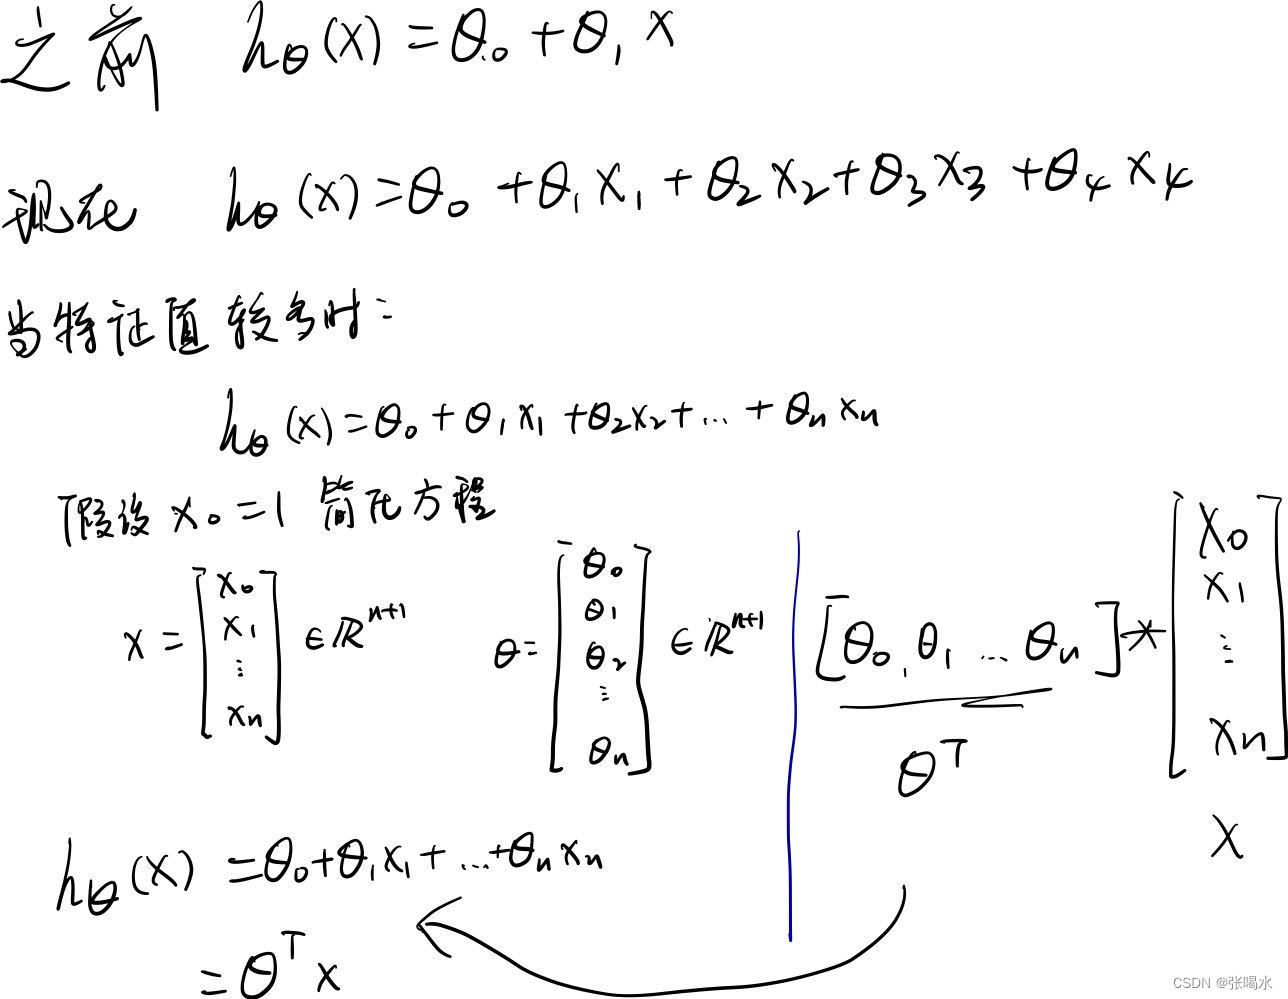 之前 h_θ(x) = θ₀ + θ₁ x
现在 h_θ(x) = θ₀ + θ₁ x₁ + θ₂ x₂ + θ₃ x₃ + θ₄ x₄
当特征值较多时:
h_θ(x) = θ₀ + θ₁ x₁ + θ₂ x₂ + ... + θₙ xₙ
假设 x₀ = 1 简化方程
x = [x₀ x₁ ⋮ xₙ] ∈ ℝⁿ⁺¹ θ = [θ₀ θ₁ θ₂ ⋮ θₙ] ∈ ℝⁿ⁺¹
[θ₀, θ₁ ... θₙ] * [x₀ x₁ ⋮ xₙ]
θᵀ x
h_θ(x) = θ₀ + θ₁ x₁ + ... + θₙ xₙ
= θᵀ x
CSDN @张喝水